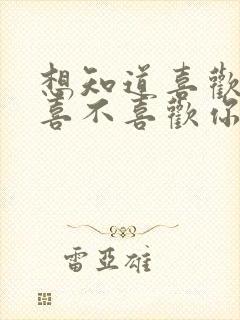 想知道喜歡
喜不喜歡你
雷亞雄